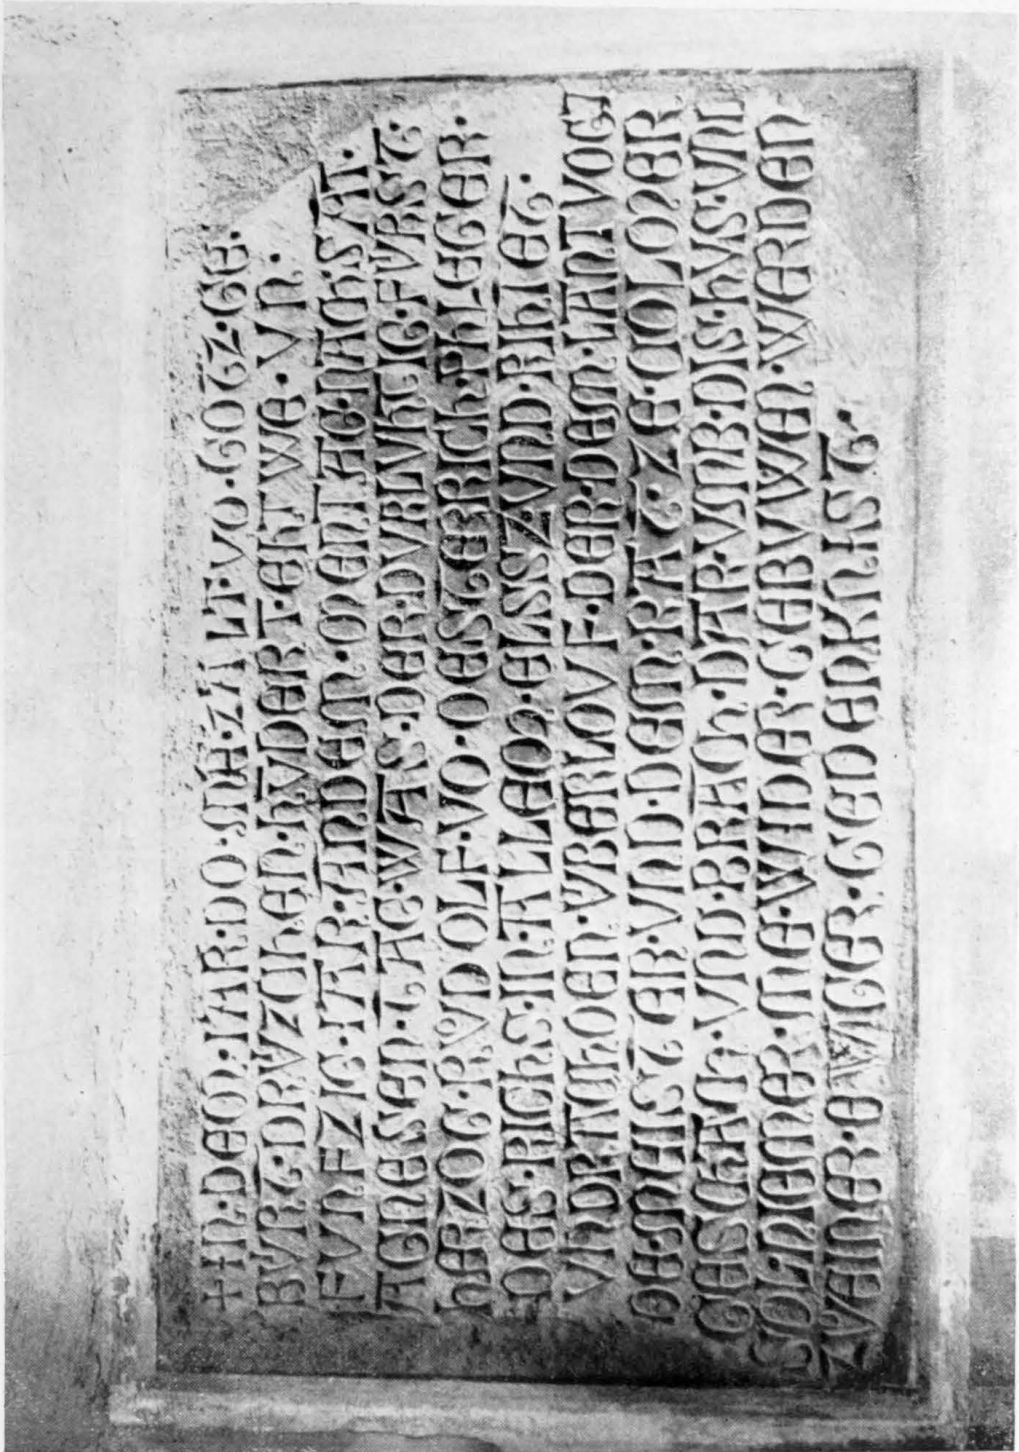 + IN · DEM · IAR · DO · MĀ · ZALT · VO · GOTZ · GE ·
BVRT · DRVZCHEN · HVDERT · EHTWE · VN ·
FVNFZIG · IAR · AN DEM · MENTAG · NACH · SAT ·
AGNESEN · TAG · WAS · DER · DVRLVHTIG · FVRST ·
HERZOG · RVDOLF · VO · OESTERRICH · PHLEGER ·
DES · RICHS · IN · ALLEM · ELSSZ · VND · RHIET ·
VND
VBERLOVF · DER · DEM · LANTVOGT
ER · VND · DEM · RAT · ZE · COLMER
GESCHACH · VND · BRACH · DAR · VMB · DIS · HVS · VNL
SOL · NIEMER · ME · WIDER · GEBVWEN · WERDEN
ZVEINER · EWIGER · GEDENKNIST ·